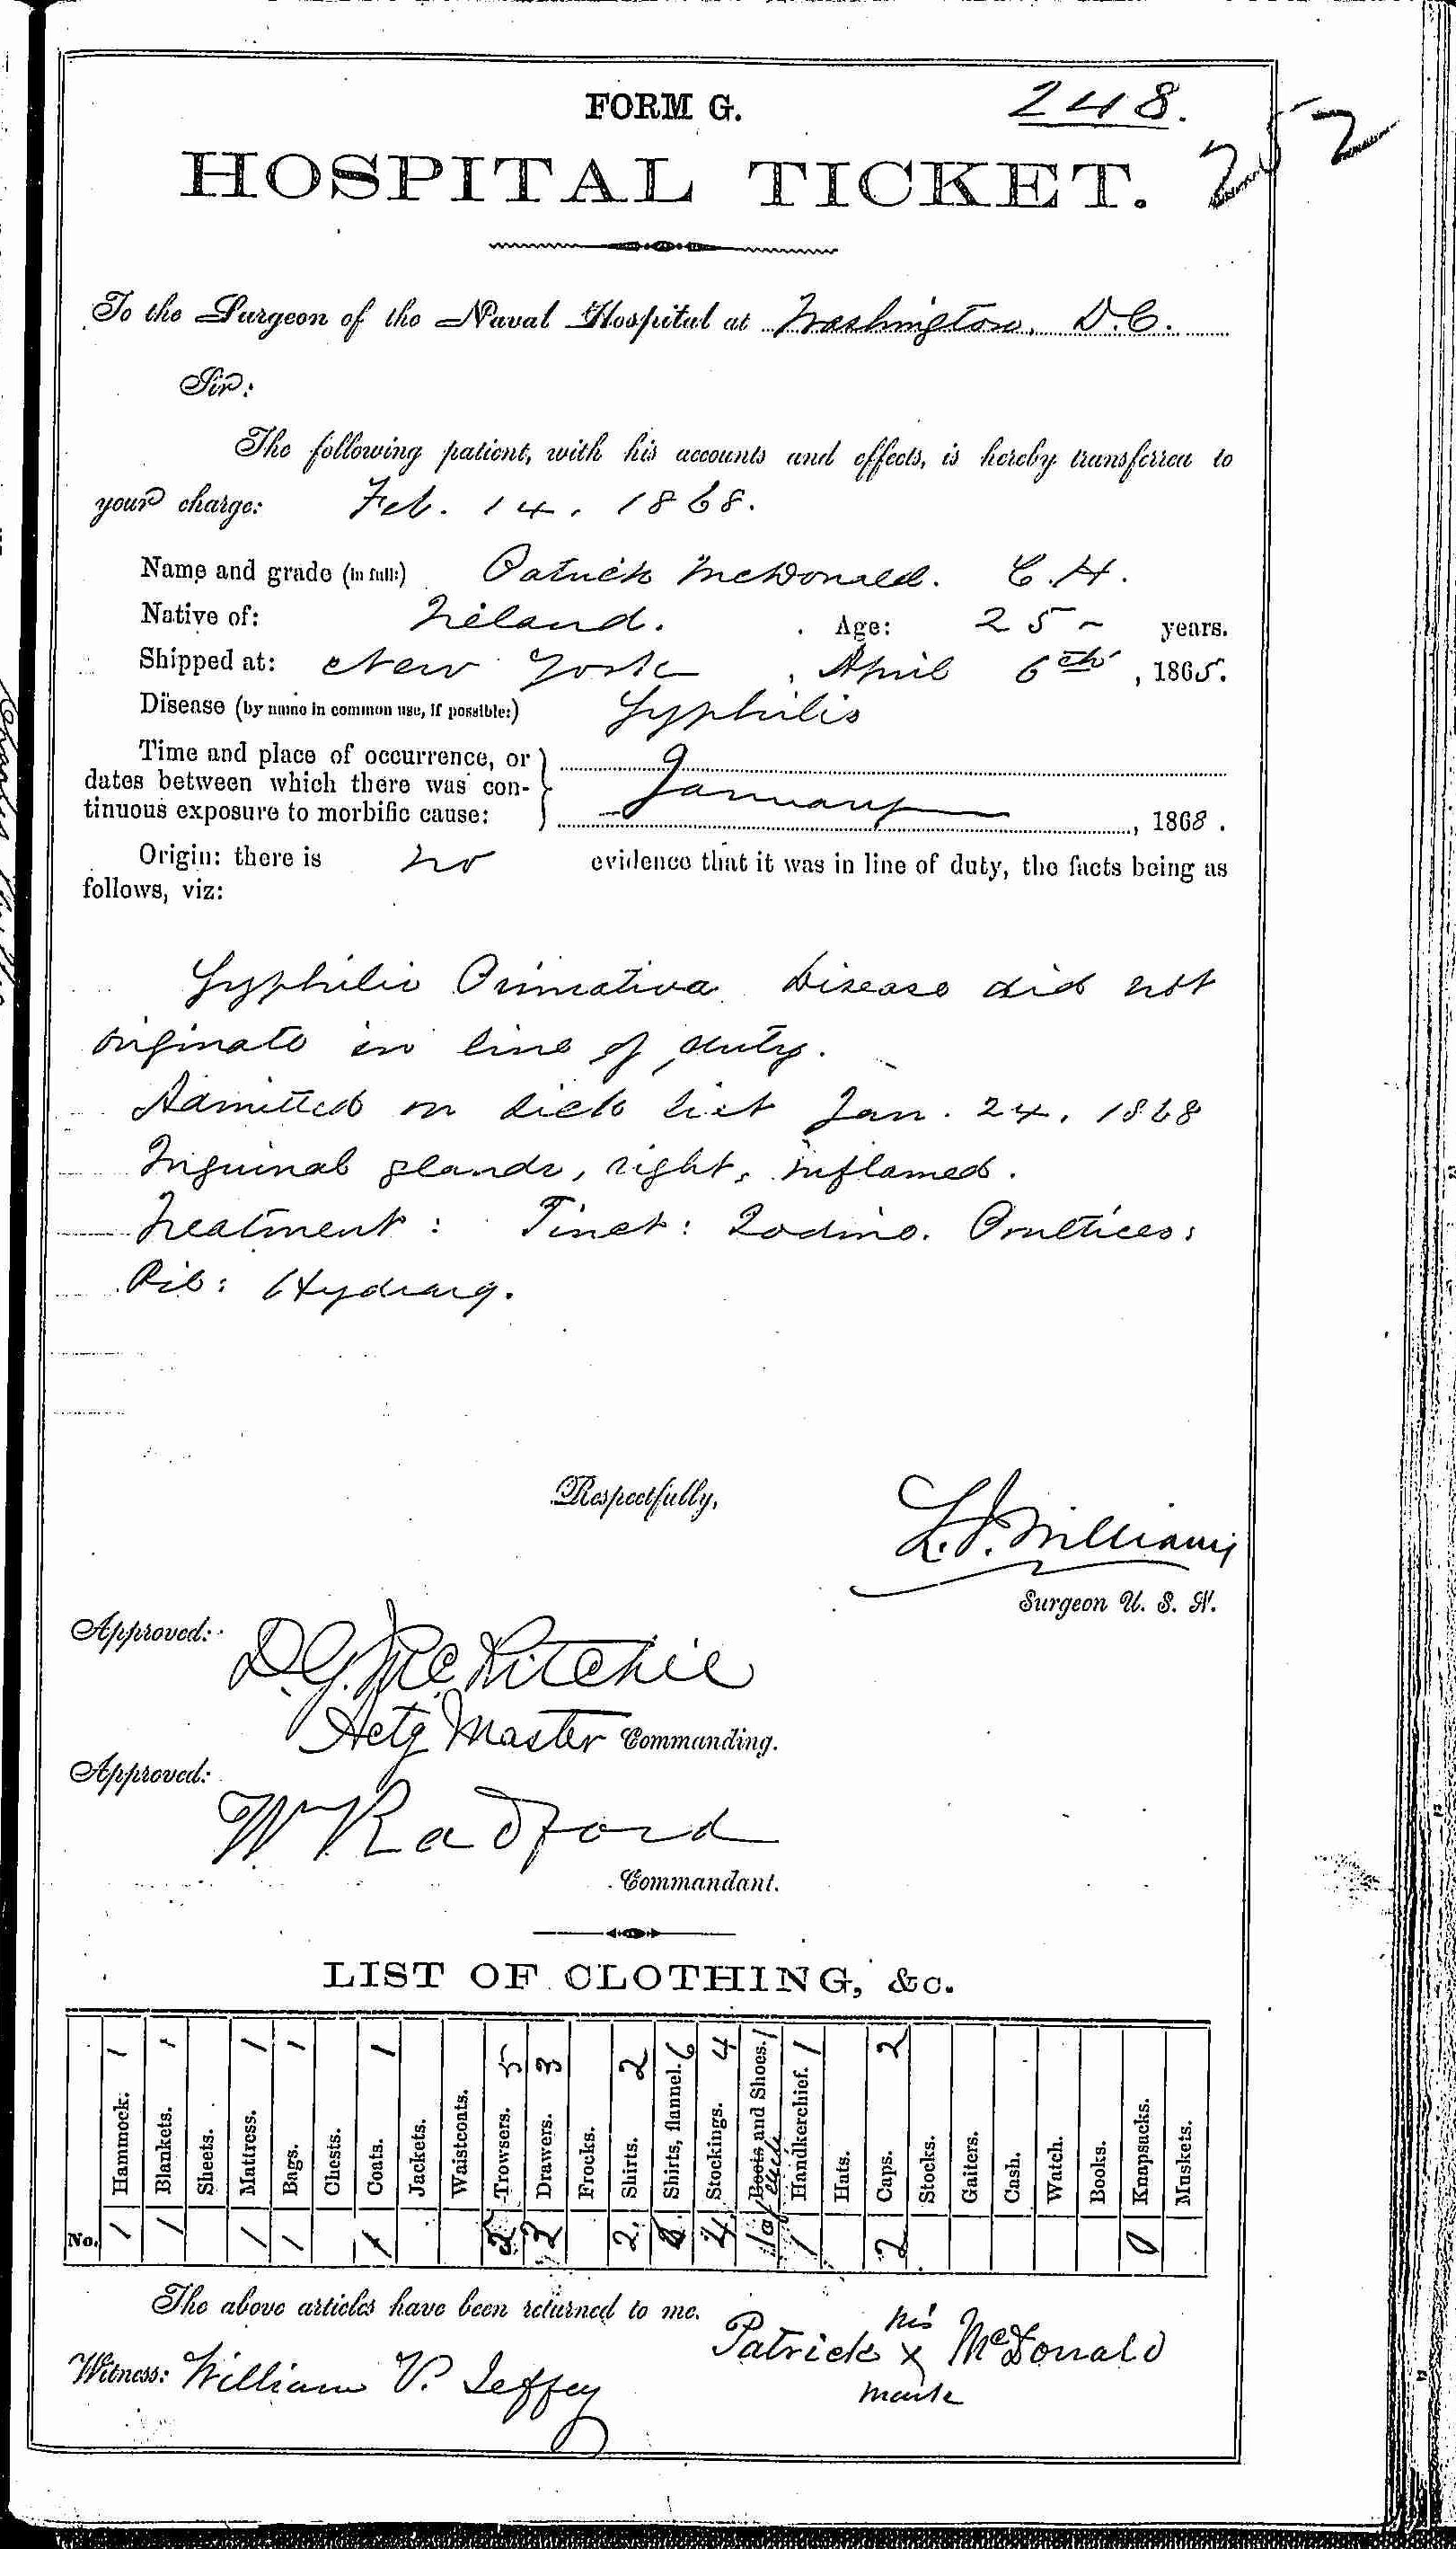 FORM G.
248.
252
HOSPITAL TICKET.
To the Surgeon of the Naval Hospital at Washington, D.C.
Sir:
The following patient, with his accounts and effects, is hereby transferred to
your charge: Feb. 14. 1868.
Name and grade (in full:) Patrick McDonald. C.H.
Native of: Ireland. Age: 25 years.
Shipped at: New York, April 6th, 1865.
Disease (by name in common use, if possible:) Syphilis
Time and place of occurrence, or
dates between which there was con-
tinuous exposure to morbific cause: January, 1868.
Origin: there is no evidence that it was in line of duty, the facts being as
follows, viz:
Syphilis Primativa. Disease did not
originate in line of duty.
Admitted on sick list Jan. 24, 1868
Inguinal glands, right, inflamed.
Treatment: Tinct: Iodine. Poultices:
Pil: Hydrarg.
Respectfully,
L.J. Williams
Surgeon U. S. N.
Approved: D.G. McRitchie
Actg Master Commanding.
Approved:
W Radford
Commandant.
LIST OF CLOTHING, &c.
Hammock. 1 Blankets. 1 Sheets. Mattress. 1 Bags. 1 Chests. Coats. 1 Jackets. Waistcoats. Trowsers. 5 Drawers. 3 Frocks. Shirts. 2 Shirts, flannel. 6 Stockings. 4 Boots and Shoes. 1 Handkerchief. 1 Hats. Caps. 2 Stocks. Gaiters. Cash. Watch. Books. Knapsacks. Muskets.
No. 1 1 1 1 1 2 2 4 1 of each 1 2 0
The above articles have been returned to me.
Patrick his x mark McDonald
Witness: William V. Jeffey